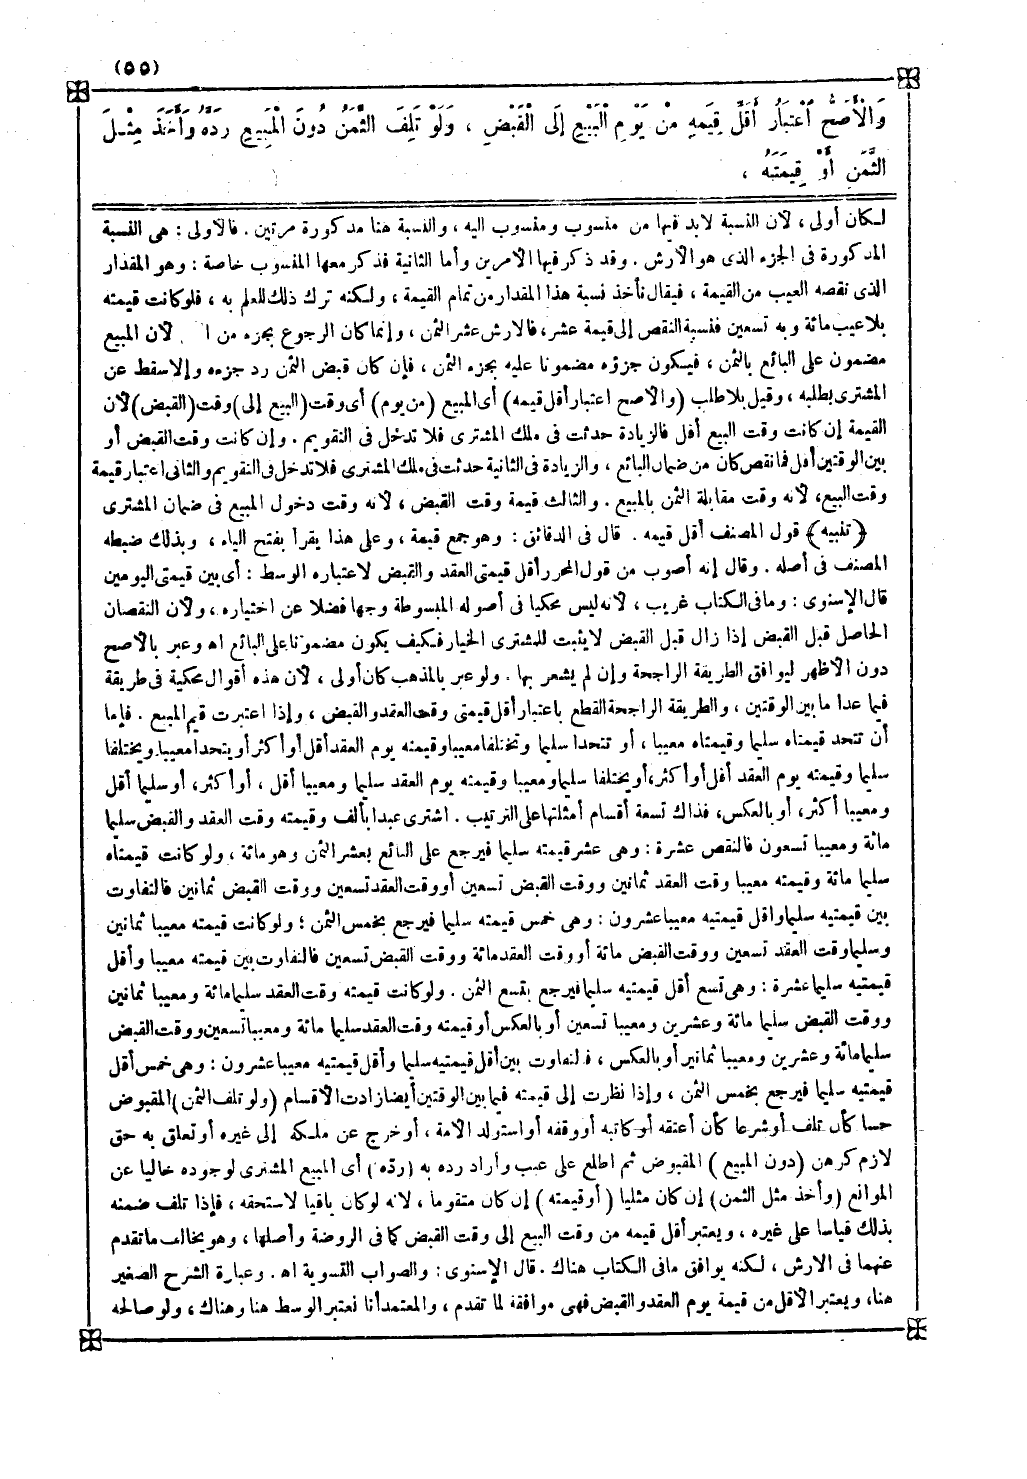 (٥٥)
وَالْأَصَحُّ اعْتِبَارُ أَقَلِّ قِيَمِهِ مِنْ يَوْمِ الْبَيْعِ إِلَى الْقَبْضِ ، وَلَوْ تَلِفَ الثَّمَنُ دُونَ الْمَبِيعِ رَدَّهُ وَأَخَذَ مِثْلَ
الثَّمَنِ أَوْ قِيمَتَهُ ،
لكان أولى ، لأن النسبة لابد فيها من منسوب ومنسوب اليه ، والنسبة هنا مذكورة مرتين . فالأولى : هى النسبة
المذكورة فى الجزء الذى هو الأرش . وقد ذكر فيها الأمرين وأما الثانية فذكر معها المنسوب خاصة : وهو المقدار
الذى نقصه العيب من القيمة ، فيقال نأخذ نسبة هذا المقدار من تمام القيمة ، ولكنه ترك ذلك للعلم به ، فلو كانت قيمته
بلا عيب مائة وبه تسعين فنسبة النقص إلى قيمة عشر، فالارش عشر الثمن ، وإنما كان الرجوع بجزء من لأن المبيع
مضمون على البائع بالثمن ، فيكون جزؤه مضمونا عليه بجزء الثمن ، فإن كان قبض الثمن رد جزءه وإلا سقط عن
المشترى بطلبه ، وقيل بلا طلب (والأصح اعتبار أقل قيمه) أى المبيع (من يوم) أى وقت (البيع إلى) وقت (القبض) لأن
القيمة إن كانت وقت البيع أقل فالزيادة حدثت فى ملك المشترى فلا تدخل فى التقويم . وإن كانت وقت القبض أو
بين الوقتين أقل فما نقص كان من ضمان البائع ، والزيادة فى الثانية حدثت فى ملك المشترى فلا تدخل فى التقويم والثانى اعتبار قيمة
وقت البيع، لأنه وقت مقابلة الثمن بالمبيع . والثالث قيمة وقت القبض ، لأنه وقت دخول المبيع فى ضمان المشترى
﴿ تنبيه ﴾ قول المصنف أقل قيمه . قال فى الدقائق : وهو جمع قيمة ، وعلى هذا يقرأ بفتح الياء ، وبذلك ضبطه
المصنف فى أصله . وقال إنه أصوب من قول المحرر أقل قيمتى العقد والقبض لاعتباره الوسط : أى بين قيمتى اليومين
قال الإسنوى : وما فى الكتاب غريب ، لأنه ليس محكيا فى أصوله المبسوطة وجها فضلا عن اختياره ، ولأن النقصان
الحاصل قبل القبض إذا زال قبل القبض لا يثبت للمشترى الخيار فكيف يكون مضمونا على البائع اه وعبر بالأصح
دون الأظهر ليوافق الطريقة الراجحة وإن لم يشعر بها . ولو عبر بالمذهب كان أولى ، لأن هذه أقوال محكية فى طريقة
فيما عدا ما بين الوقتين ، والطريقة الراجحة القطع باعتبار أقل قيمتى وقت العقد والقبض ، وإذا اعتبرت قيم المبيع . فإما
أن تتحد قيمتاه سليما وقيمتاه معيبا ، أو تتحدا سليما وتختلفا معيبا وقيمته يوم العقد أقل أو أكثر أو يتحدا معيبا ويختلفا
سليما وقيمته يوم العقد أقل أو أكثر، أو يختلفا سليما ومعيبا وقيمته يوم العقد سليما ومعيبا أقل ، أو أكثر، أو سليما أقل
ومعيبا أكثر، أو بالعكس، فذاك تسعة أقسام أمثلتها على الترتيب . اشترى عبدا بألف وقيمته وقت العقد والقبض سليما
مائة ومعيبا تسعون فالنقص عشرة : وهى عشر قيمته سليما فيرجع على البائع بعشر الثمن وهو مائة ، ولو كانت قيمتاه
سليما مائة وقيمته معيبا وقت العقد ثمانين ووقت القبض تسعين أو وقت العقد تسعين ووقت القبض ثمانين فالتفاوت
بين قيمتيه سليما وأقل قيمتيه معيبا عشرون : وهى خمس قيمته سليما فيرجع بخمس الثمن ؛ ولو كانت قيمته معيبا ثمانين
وسليما وقت العقد تسعين ووقت القبض مائة أو وقت العقد مائة ووقت القبض تسعين فالتفاوت بين قيمته معيبا وأقل
قيمتيه سليما عشرة : وهى تسع أقل قيمتيه سليما فيرجع بتسع الثمن . ولو كانت قيمته وقت العقد سليما مائة ومعيبا ثمانين
ووقت القبض سليما مائة وعشرين ومعيبا تسعين أو بالعكس أو قيمته وقت العقد سليما مائة ومعيبا تسعين ووقت القبض
سليما مائة وعشرين ومعيبا ثمانين أو بالعكس ، فالتفاوت بين أقل قيمتيه سليما وأقل قيمتيه معيبا عشرون : وهى خمس أقل
قيمتيه سليما فيرجع بخمس الثمن ، وإذا نظرت إلى قيمته فيما بين الوقتين أيضا زادت الأقسام (ولو تلف الثمن) المقبوض
حسا كأن تلف أو شرعا كأن أعتقه أو كاتبه أو وقفه أو استولد الأمة ، أو خرج عن ملكه إلى غيره أو تعلق به حق
لازم كرهن (دون المبيع) المقبوض ثم اطلع على عيب وأراد رده به (رده) أى المبيع المشترى لوجوده خاليا عن
الموانع (وأخذ مثل الثمن) إن كان مثليا (أو قيمته) إن كان متقوما ، لأنه لو كان باقيا لاستحقه ، فإذا تلف ضمنه
بذلك قياسا على غيره ، ويعتبر أقل قيمه من وقت البيع إلى وقت القبض كما فى الروضة وأصلها ، وهو يخالف ما تقدم
عنهما فى الأرش ، لكنه يوافق ما فى الكتاب هناك . قال الإسنوى : والصواب التسوية اه . وعبارة الشرح الصغير
هنا، ويعتبر الأقل من قيمة يوم العقد والقبض فهى موافقة لما تقدم ، والمعتمد أنا نعتبر الوسط هنا وهناك ، ولو صالحه